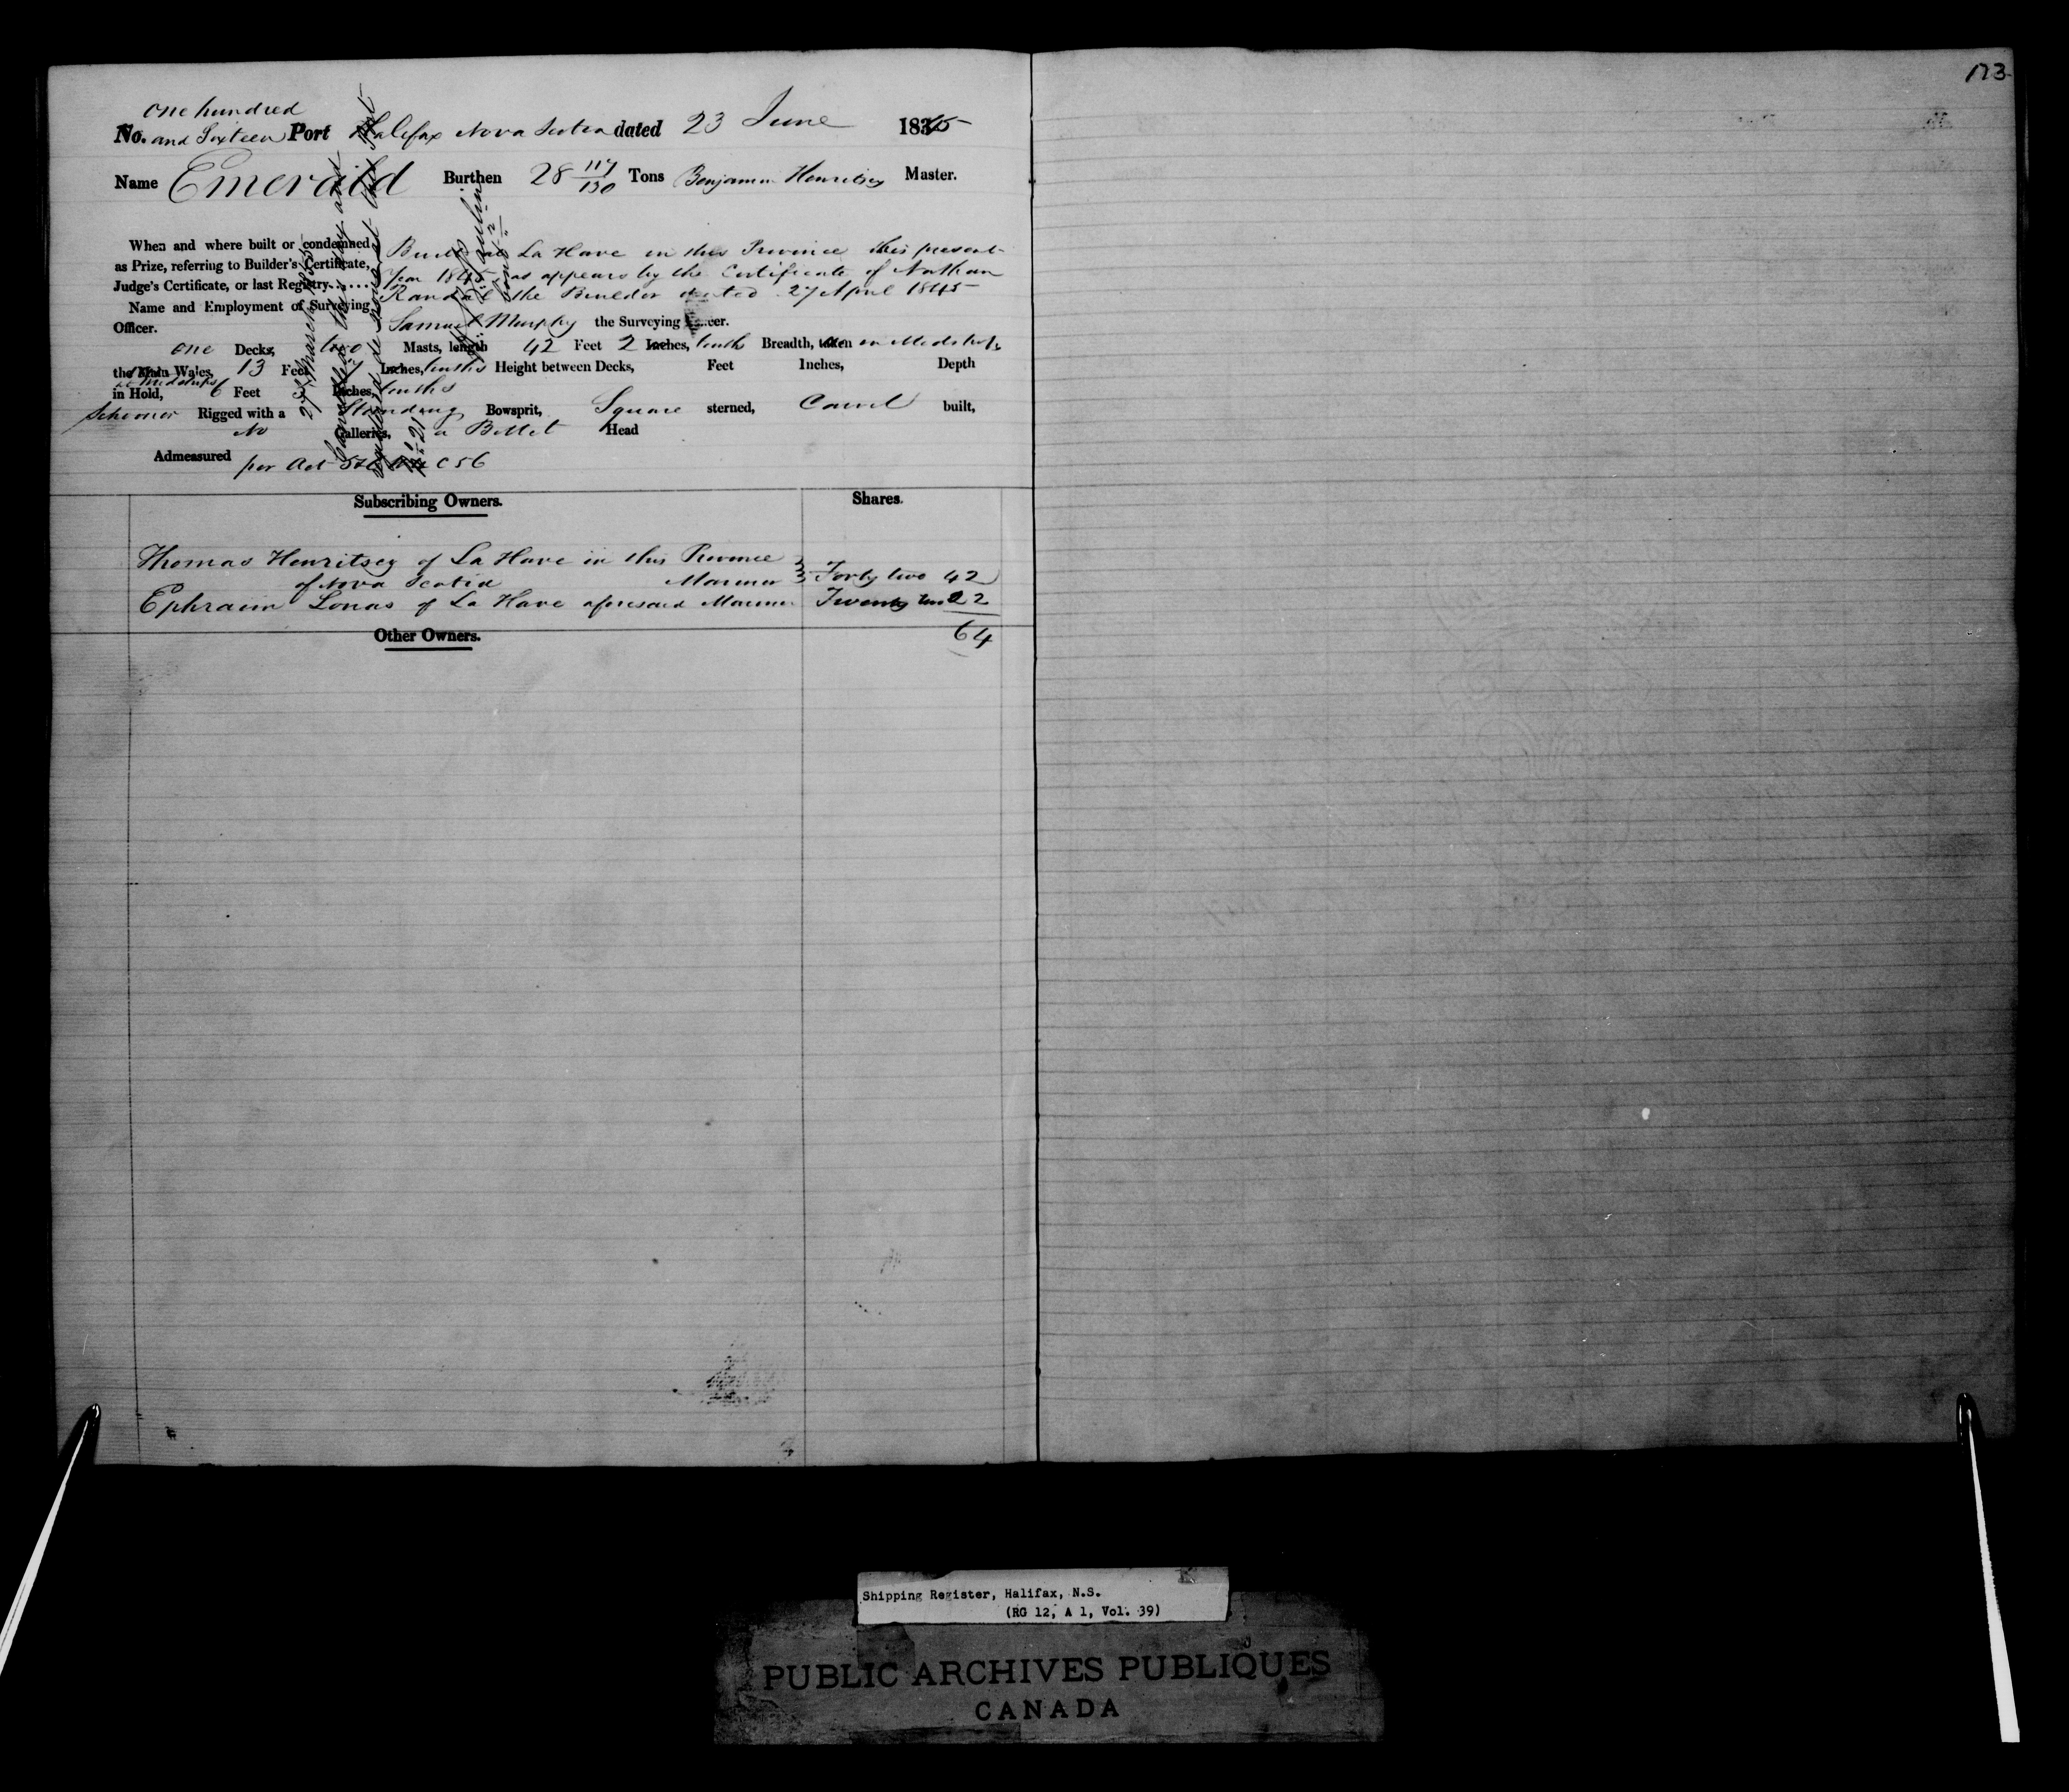 173
one hundred
No. and Sixteen Port Halifax Nova Scotia dated 23 June 1845
Name Emerald Burthen 28 117/130 Tons Benjamin Henritsey Master.
When and where built or condemned
as Prize, referring to Builder's Certificate,
Judge's Certificate, or last Registry......
Built at La Have in this Province this present
Year 1845 as appears by the Certificate of Nathan
Randal the Builder dated 27 April 1845
Name and Employment of Surveying
Officer.
Samuel Murphy the Surveying Officer.
one Decks, two Masts, length 42 Feet 2 Inches, tenths Breadth, taken in Midships
the Main Wales, 13 Feet 7 Inches, tenths Height between Decks, Feet Inches, Depth
at Midships
in Hold, 6 Feet Inches, tenths
Schooner Rigged with a Standing Bowsprit, Square sterned, Carvel built,
No Galleries, a Billet Head
Admeasured per Act C 56
27 March 1855
Cancelled the
Subscribing Owners. Shares.
Thomas Henritsey of La Have in this Province
of Nova Scotia Mariner Forty two 42
Ephraim Lonas of La Have aforesaid Mariner Twenty two 22
64
Other Owners.
Shipping Register, Halifax, N.S.
(RG 12, A 1, Vol. 39)
PUBLIC ARCHIVES PUBLIQUES
CANADA